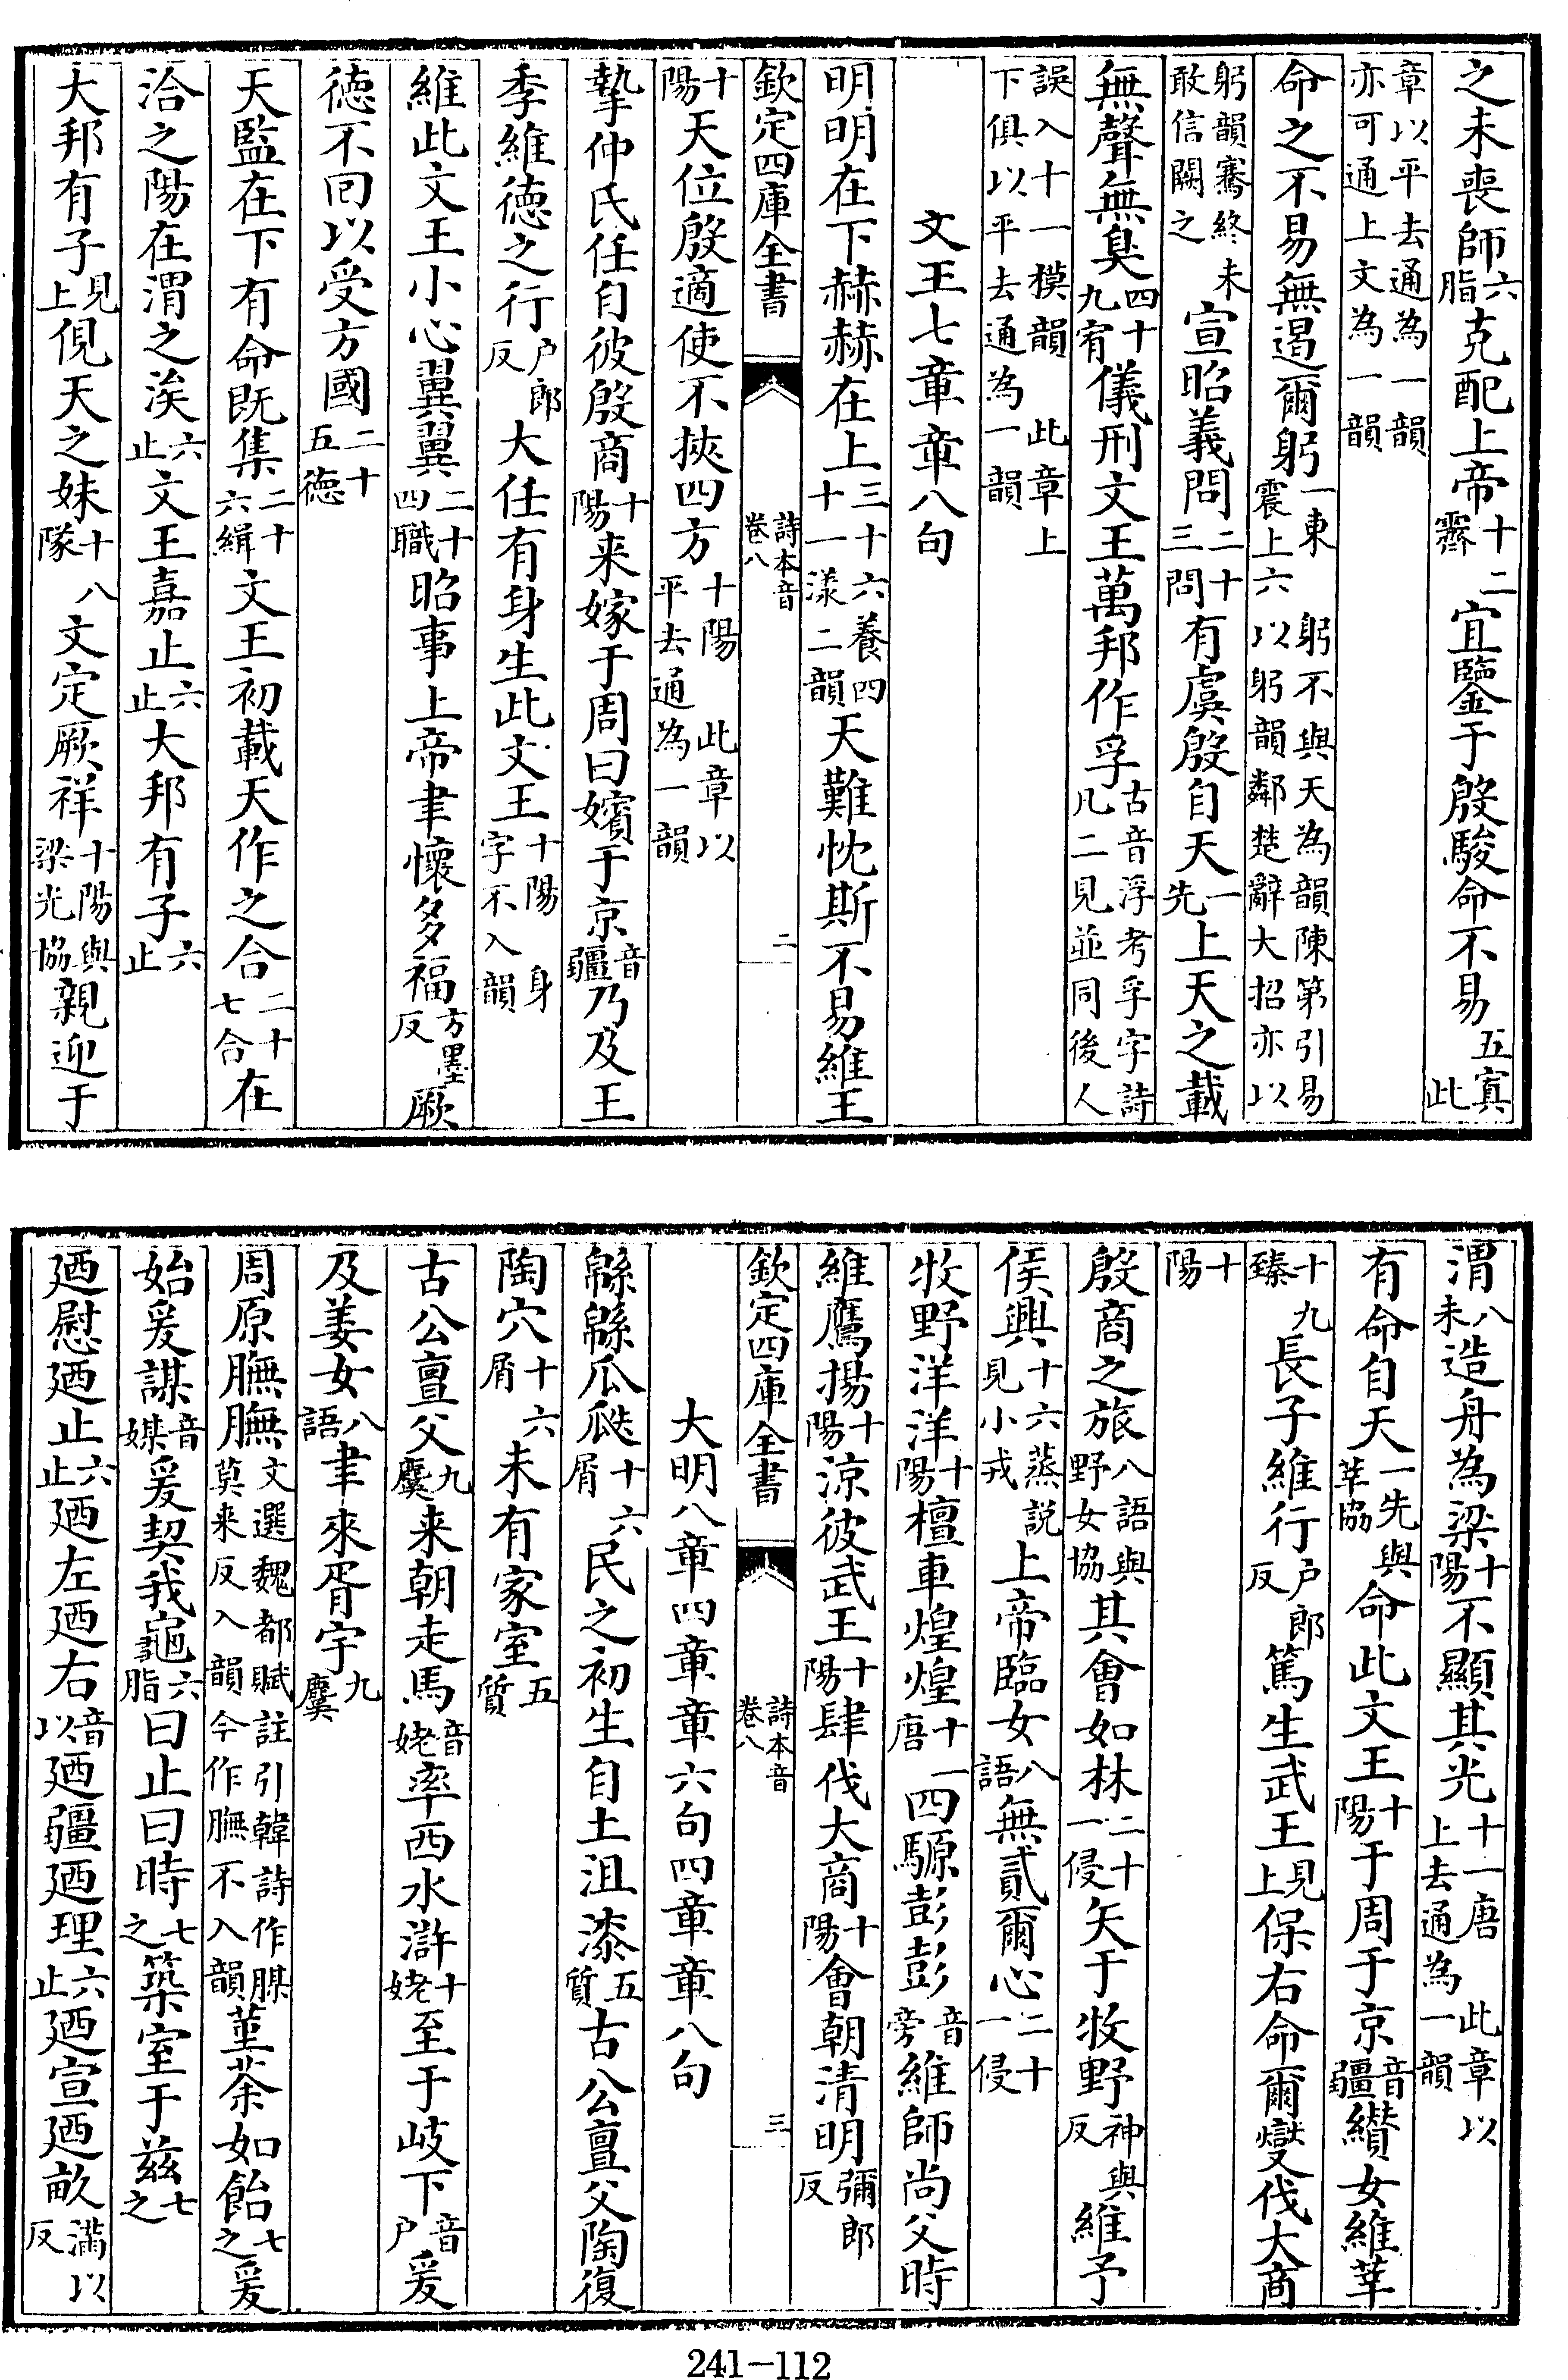 之未喪師六脂克配上帝十二霽宜鑒于殷駿命不易五寘此
章以平去通為一韻亦可通上文為一韻
命之不易無遏爾躬一東躬不與天為韻陳第引易震上六以躬韻鄰楚辭大招亦以
躬韻騫終未敢信闕之宣昭義問二十三問有虞殷自天一先上天之載
無聲無臭四十九宥儀刑文王萬邦作孚古音浮考孚字詩凡二見並同後人
誤入十一模韻此章上下俱以平去通為一韻
文王七章章八句
明明在下赫赫在上三十六養四十一漾二韻天難忱斯不易維王
欽定四庫全書
詩本音
卷八
二
十陽天位殷適使不挾四方十陽此章以平去通為一韻
摯仲氏任自彼殷商十陽来嫁于周曰嬪于京音疆乃及王
季維德之行户郎反大任有身生此文王十陽身字不入韻
維此文王小心翼翼二十四職昭事上帝聿懷多福方墨反厥
德不囘以受方國二十五德
天監在下有命既集二十六緝文王初載天作之合二十七合在
洽之陽在渭之涘六止文王嘉止六止大邦有子六止
大邦有子見上俔天之妹十八隊文定厥祥十陽與梁光協親迎于
渭八未造舟為梁十陽不顯其光十一唐此章以上去通為一韻
有命自天一先與莘協命此文王十陽于周于京音疆纘女維莘
十九臻長子維行户郎反篤生武王見上保右命爾燮伐大商
十陽
殷商之旅八語與野女協其會如林二十一侵矢于牧野神與反維予
侯興十六蒸説見小戎上帝臨女八語無貳爾心二十一侵
牧野洋洋十陽檀車煌煌十一唐四騵彭彭音旁維師尚父時
維鷹揚十陽涼彼武王十陽肆伐大商十陽會朝清明彌郎反
欽定四庫全書
詩本音
卷八
三
大明八章四章章六句四章章八句
緜緜瓜瓞十六屑民之初生自土沮漆五質古公亶父陶復
陶穴十六屑未有家室五質
古公亶父九麌来朝走馬音姥率西水滸十姥至于岐下音户爰
及姜女八語聿來胥宇九麌
周原膴膴文選魏都賦註引韓詩作腜莫来反入韻今作膴不入韻菫荼如飴七之爰
始爰謀音媒爰契我龜六脂曰止曰時七之築室于茲七之
廼慰廼止六止廼左廼右音以廼疆廼理六止廼宣廼畝滿以反
241-112